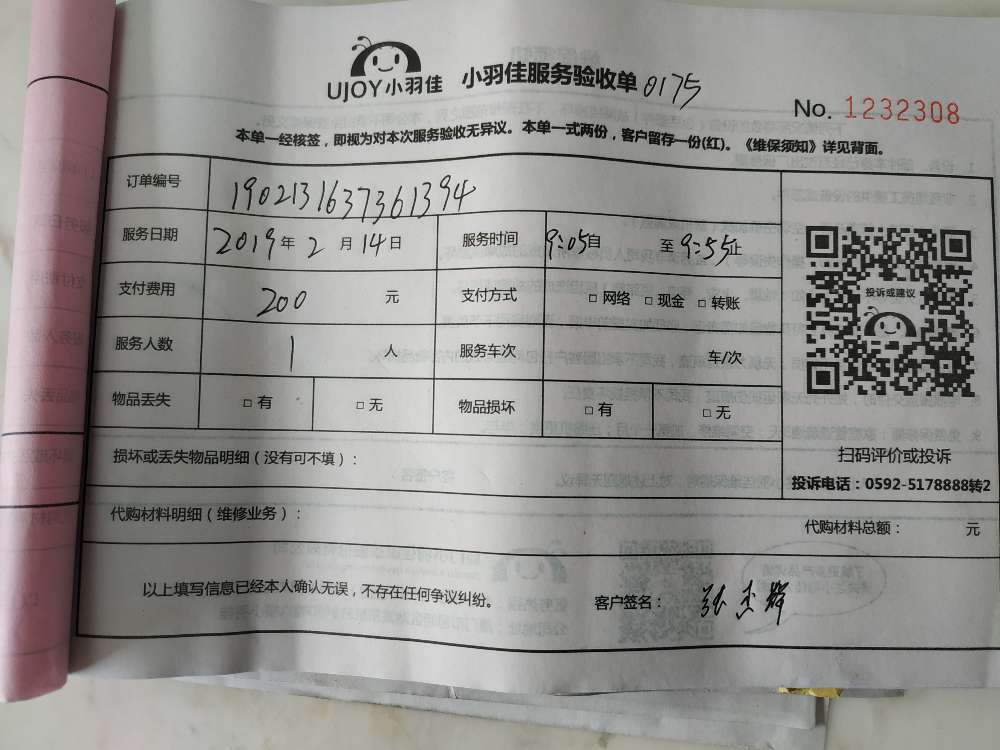 UJOY小羽佳 小羽佳服务验收单 0175
No. 1232308
本单一经核签，即视为对本次服务验收无异议。本单一式两份，客户留存一份(红)。《维保须知》详见背面。
订单编号 1902131637361394
服务日期 2019年2月14日 服务时间 9:05自 至9:55止
支付费用 200 元 支付方式 □ 网络 □ 现金 □ 转账
投诉或建议
服务人数 1 人 服务车次 车/次
物品丢失 □ 有 □ 无 物品损坏 □ 有 □ 无
损坏或丢失物品明细（没有可不填）：
扫码评价或投诉
投诉电话：0592-5178888转2
代购材料明细（维修业务）：
代购材料总额： 元
以上填写信息已经本人确认无误，不存在任何争议纠纷。 客户签名：